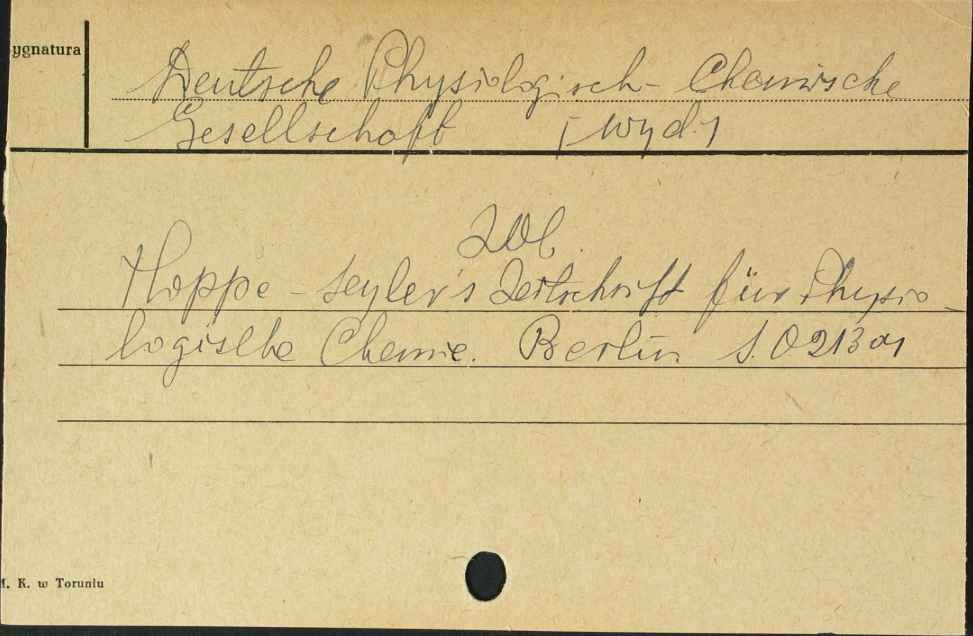 ygnatura
Deutsche Physiologisch-Chemische
Gesellschaft [wyd.]
Zob.
Hoppe-Seyler's Zeitschrift für Physio-
logische Chemie. Berlin S. 0213
M. K. w Toruniu